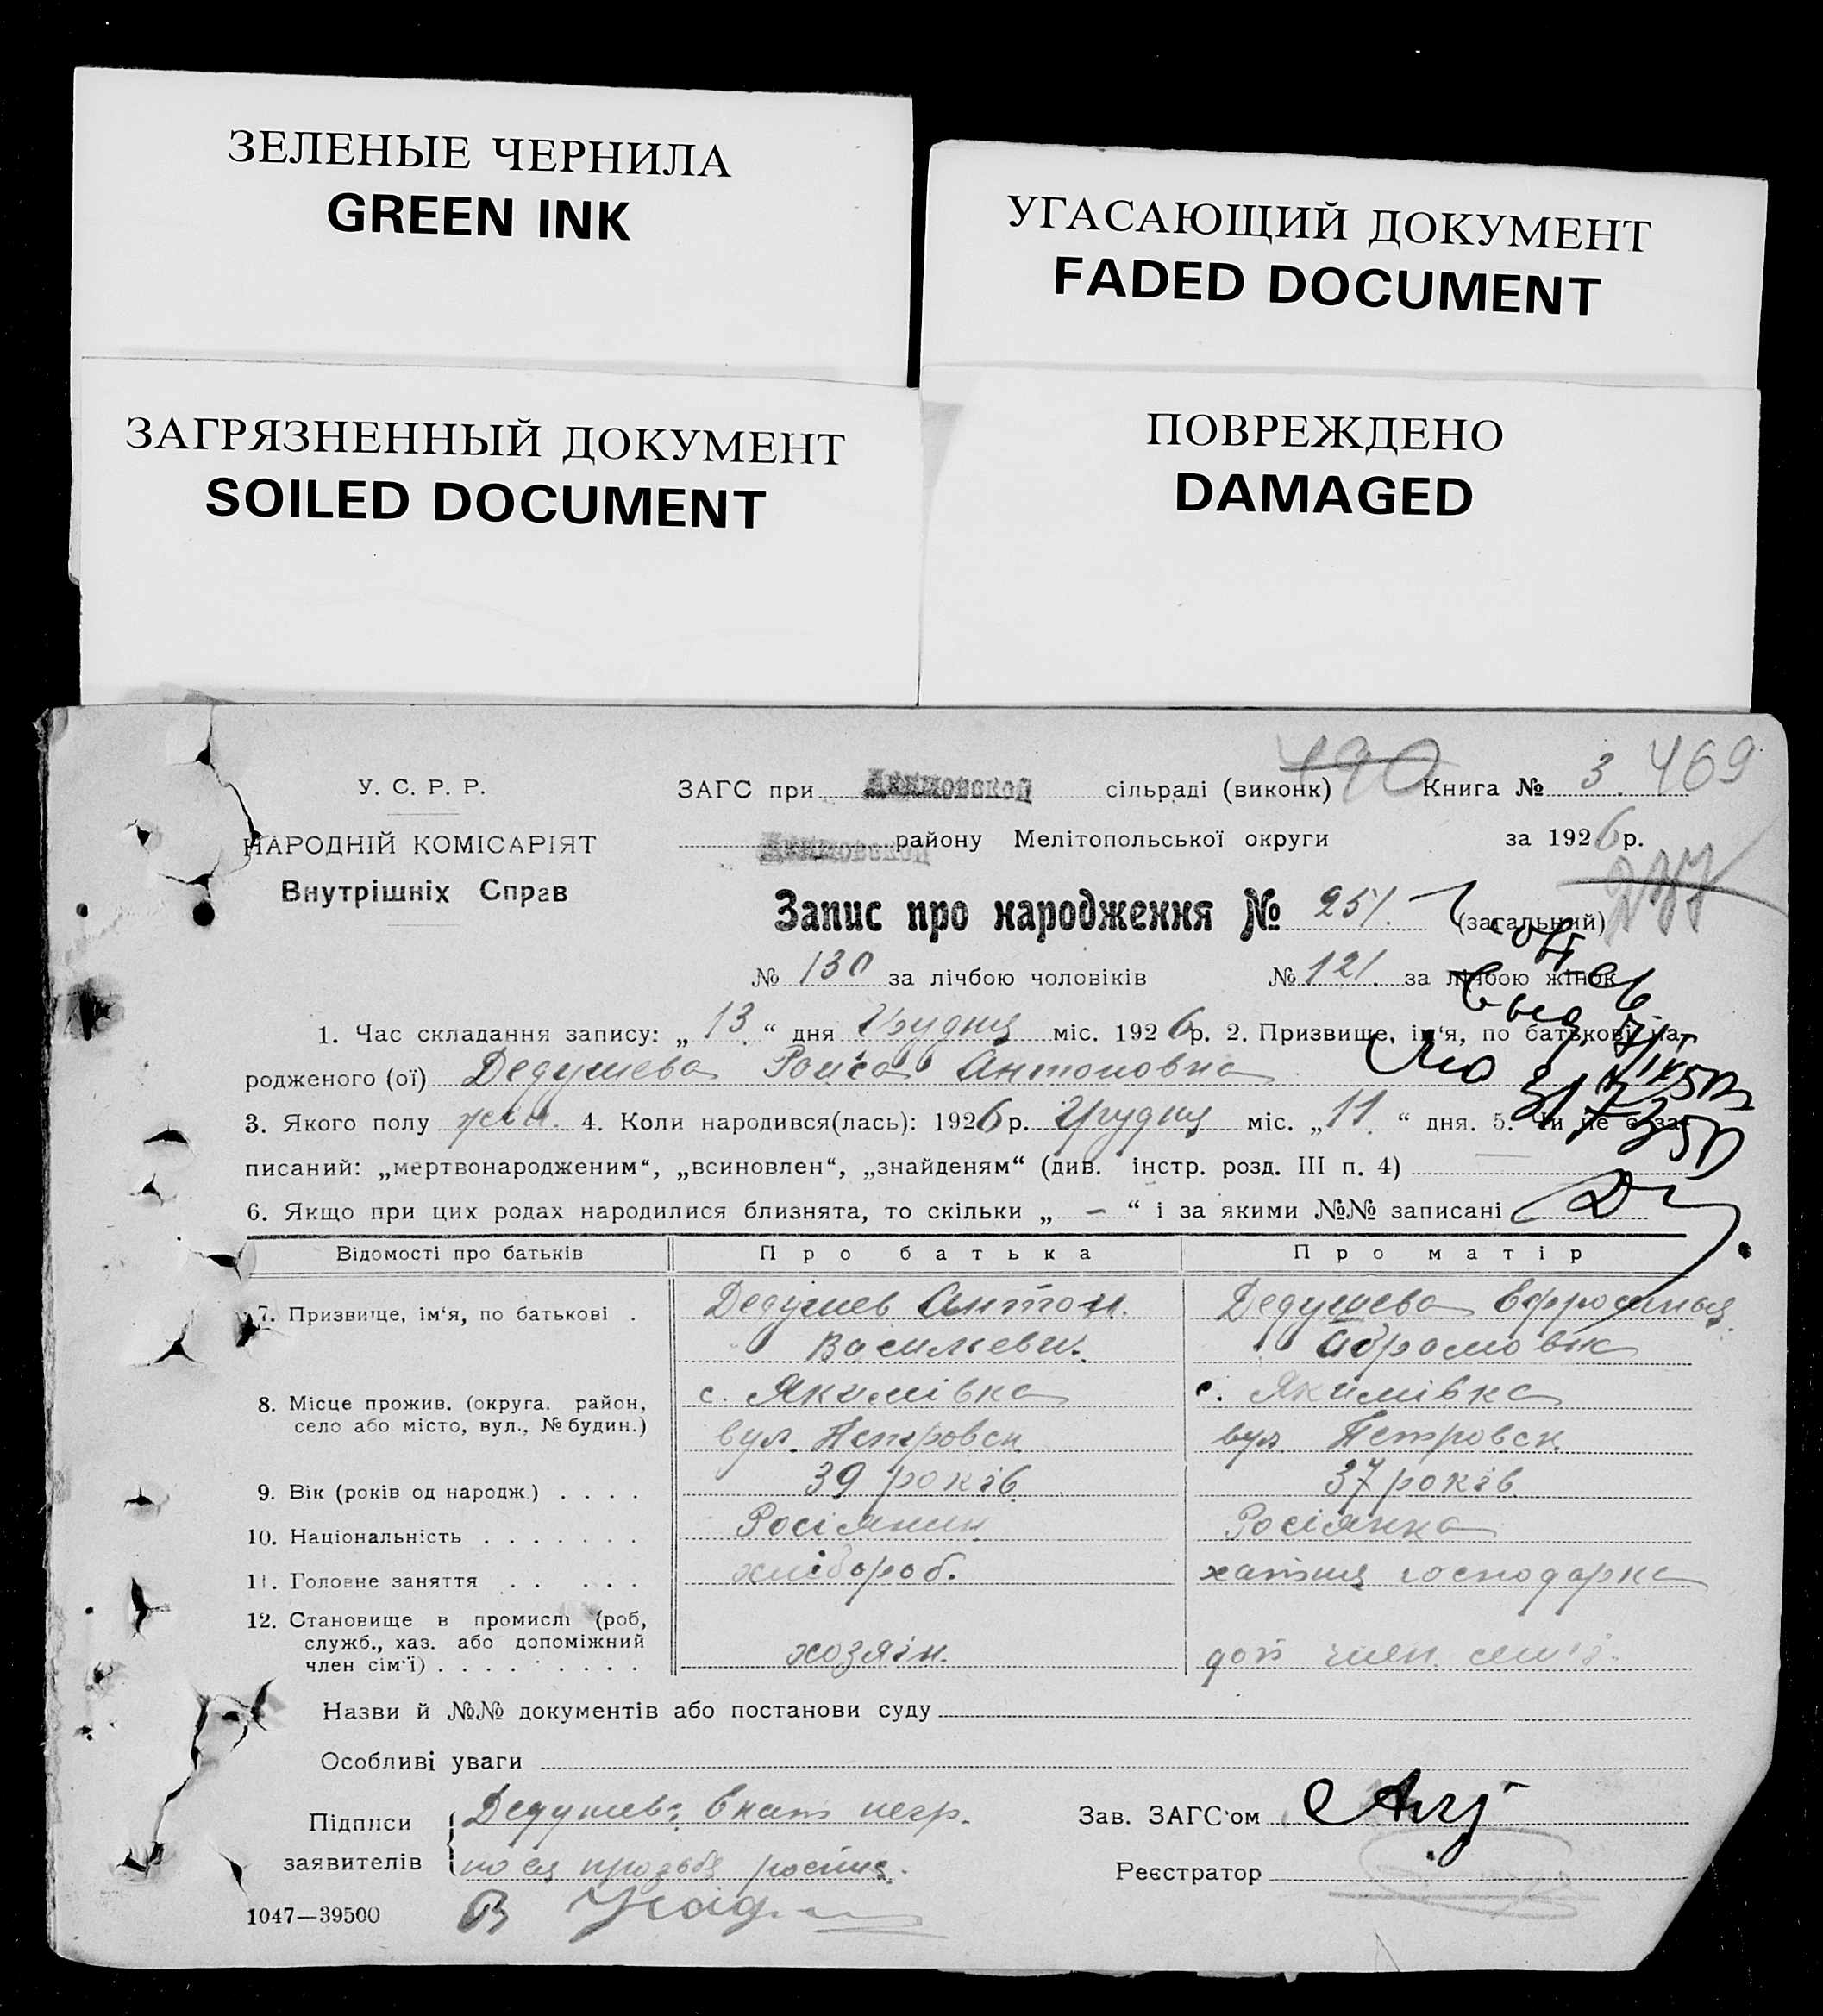 ЗЕЛЕНЫЕ ЧЕРНИЛА
GREEN INK
УГАСАЮЩИЙ ДОКУМЕНТ
FADED DOCUMENT
ЗАГРЯЗНЕННЫЙ ДОКУМЕНТ
SOILED DOCUMENT
ПОВРЕЖДЕНО
DAMAGED
490 469
У. С. Р. Р.
ЗАГС при Акимовской сільраді (виконк) Книга № 3.
НАРОДНІЙ КОМІСАРІЯТ
Внутрішніх Справ
Акимовской району Мелітопольської округи за 1926 р.
277
Запис про народження № 251. (загальний)
№ 130 за лічбою чоловіків № 121. за лічбою жінок
1. Час складання запису: „ 13 “ дня Грудня міс. 1926 р. 2. Призвище, ім‘я, по батькові на-
родженого (ої) Дедушева Раиса Антоновна
3. Якого полу жін. 4. Коли народився(лась): 1926 р. Грудня міс. „ 11 “ дня. 5. Чи не є за-
писаний: „мертвонародженим“, „всиновлен“, „знайденям“ (див. інстр. розд. III п. 4)
6. Якщо при цих родах народилися близнята, то скільки „ – “ і за якими №№ записані
Відомості про батьків Про батька Про матір
7. Призвище, ім‘я, по батькові . Дедушев Антон Дедушева Ефросинья
Васильеви. Абрамовн
8. Місце прожив. (округа, район, село або місто, вул., № будин.) с. Якимівка с. Якимівка
вул. Петровск. вул Петровск.
9. Вік (років од народж.) . . . . 39 років 37 років
10. Національність . . . . . . . Росіянин Росіянка
11. Головне заняття . . . . . хлібороб. хатня господарка
12. Становище в промислі (роб, служб., хаз. або допоміжний член сім‘ї) . . . . . . . . . хозяін. доп член сем'ї.
Назви й №№ документів або постанови суду
Особливі уваги
Підписи заявителів Дедушев. негр.
Зав. ЗАГС‘ом
Реєстратор
1047—39500